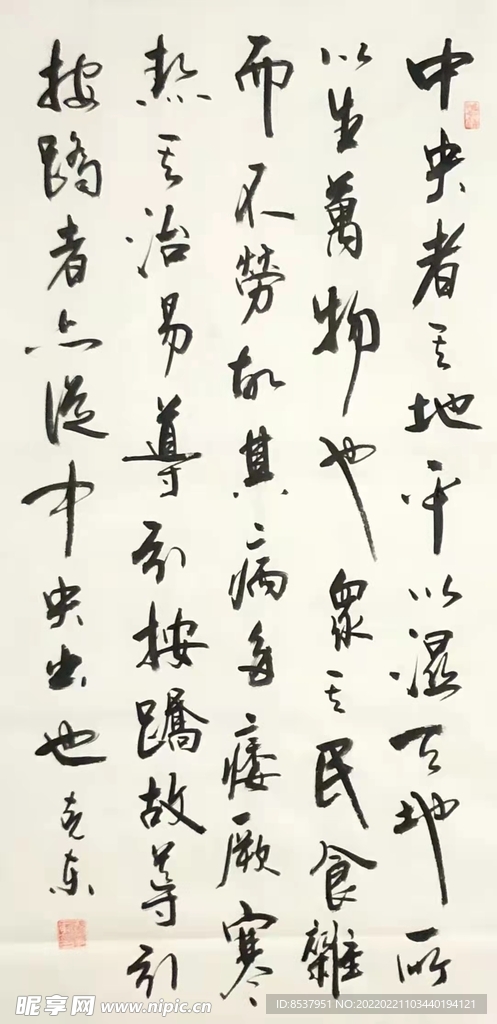 中央者其地平以濕天地所
以生萬物也眾其民食雜
而不勞故其病多痿厥寒
熱其治易導引按蹻故導引
按蹻者亦從中央出也
克东
昵享网 www.nipic.cn
ID:8537951 NO:20220221103440194121